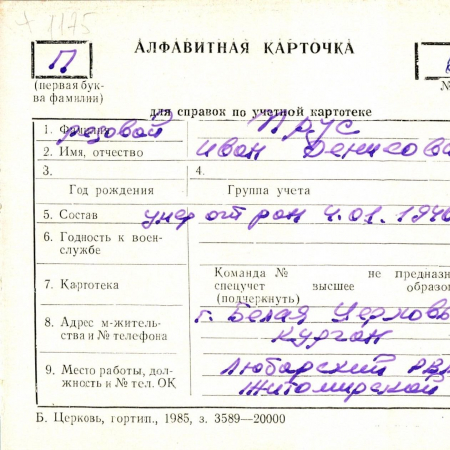 1175
АЛФАВИТНАЯ КАРТОЧКА
П
(первая бук-
ва фамилии)
№
для справок по учетной картотеке
1. Фамилия рядовой Прус
2. Имя, отчество Иван Денисови
3. 4.
Год рождения Группа учета
5. Состав умер от ран 4.01.194
6. Годность к воен-
службе
Команда № не предназн
7. Картотека спецучет высшее образо
(подчеркнуть)
8. Адрес м-житель- г. Белая Церковь
ства и № телефона Курган
9. Место работы, дол- Любарский РВ
жность и № тел. ОК Житомирской
Б. Церковь, гортип., 1985, з. 3589—20000